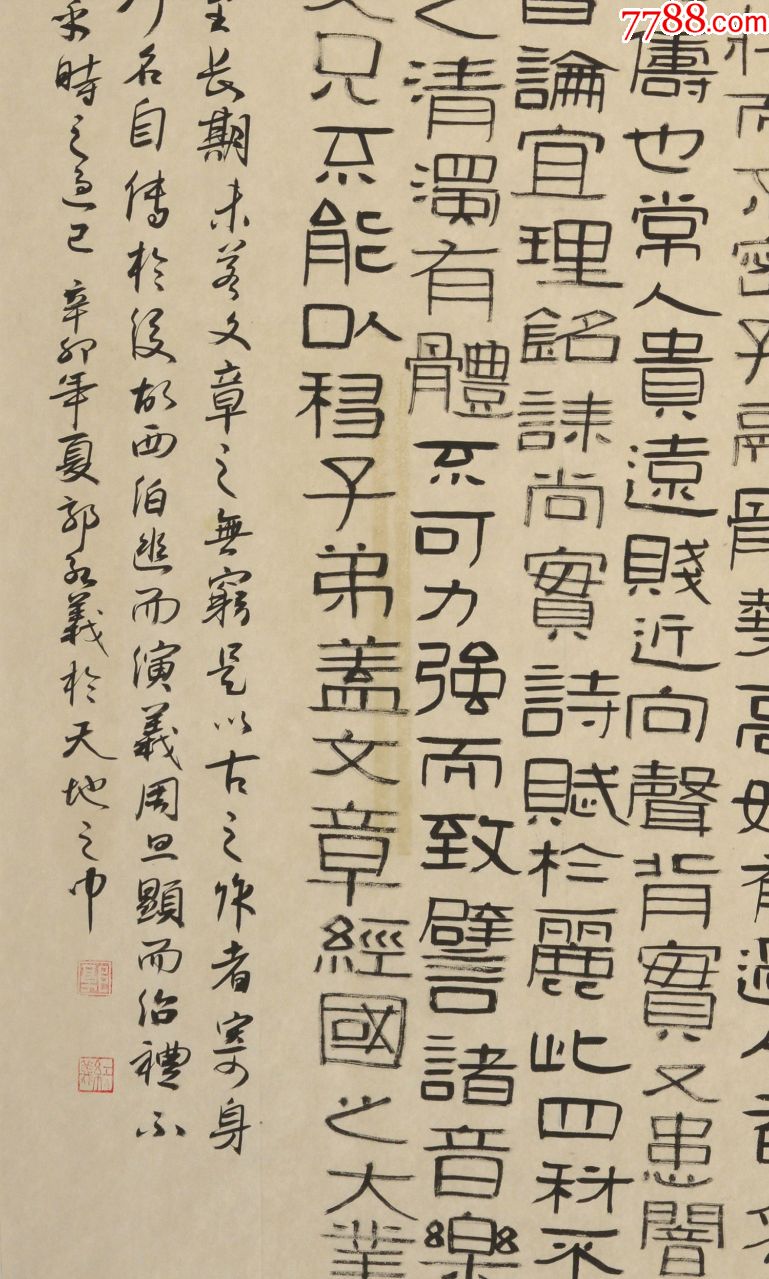 壯而不密孔融體高妙有過人者
儔也常人貴遠賤近向聲背實又患闇
論宜理銘誄尚實詩賦於麗此四科不
之清濁有體不可力強而致譬諸音樂
父兄不能以移子弟蓋文章經國之大業
至長期未若文章之無窮是以古之作者寄身
名自傳於後故西伯幽而演義周旦顯而治禮不
乎時之過已 辛卯年夏郭紅義於天地之中
7788.com